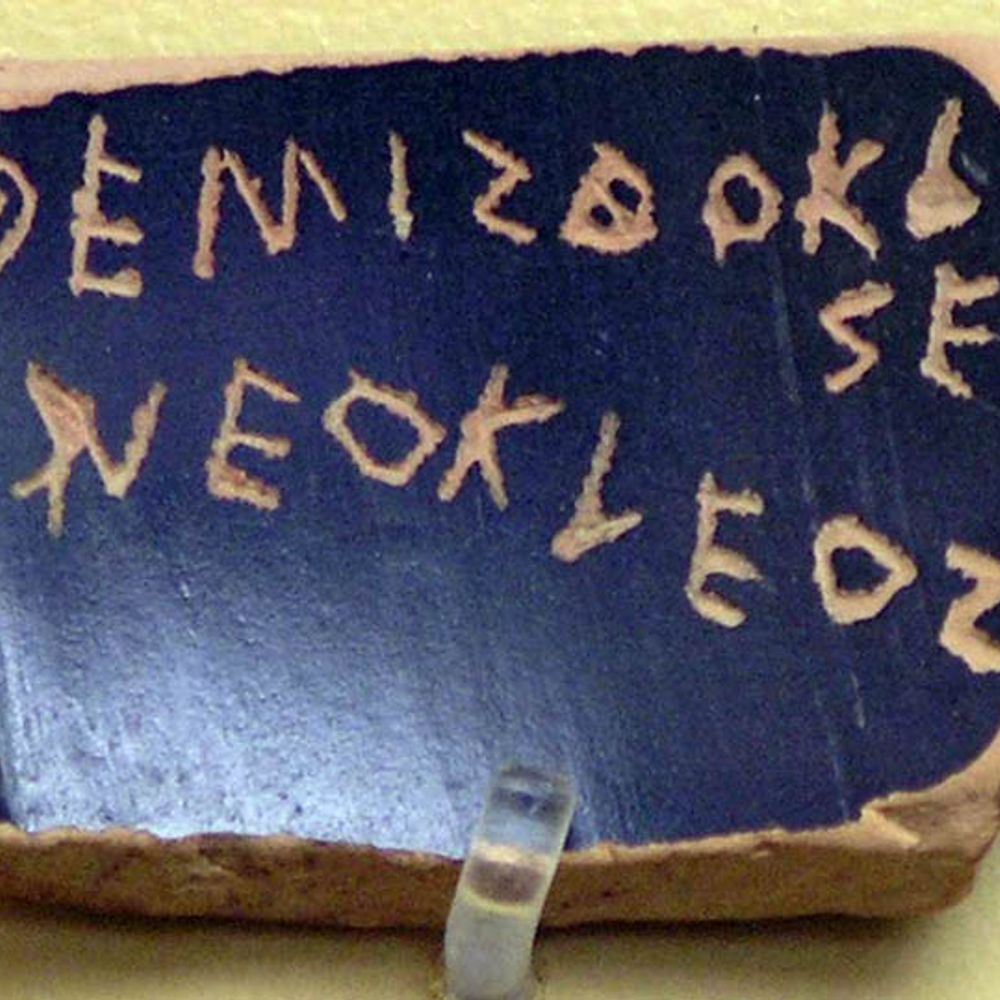 ΘΕΜΙΣΘΟΚL
ΣΕ
ΝΕΟΚLΕΟΣ